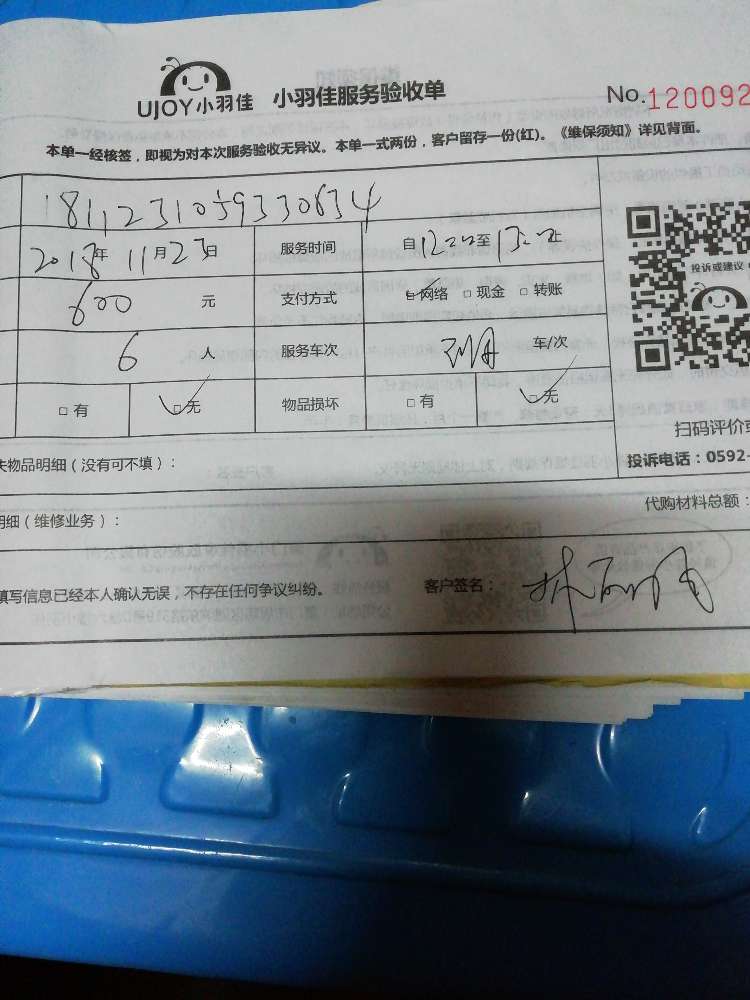 UJOY小羽佳 小羽佳服务验收单 No.120092
本单一经核签，即视为对本次服务验收无异议。本单一式两份，客户留存一份(红)。《维保须知》详见背面。
1811231059330634
2018年 11月23日 服务时间 自12:00至13:00止
600 元 支付方式 网络 □现金 □转账
投诉或建议
6 人 服务车次 车/次
□有 □无 物品损坏 □有 □无
扫码评价或
物品明细（没有可不填）：
投诉电话：0592-
明细（维修业务）：
代购材料总额：
填写信息已经本人确认无误，不存在任何争议纠纷。 客户签名：